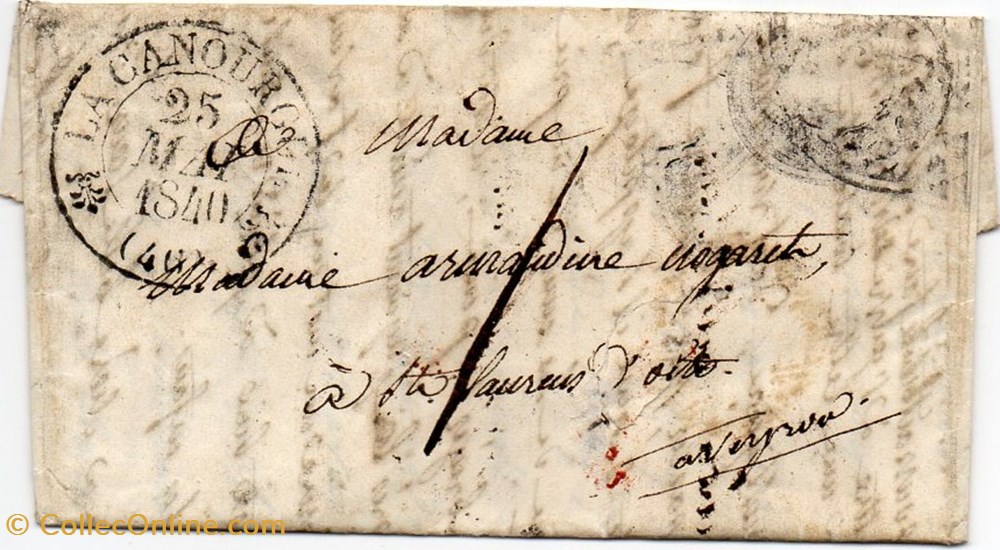 LA CANOURGUE
25
MAI
1840
(46)
A Madame
Madame armandine nogaret,
à St. Laurens d'olt.
aveyron.
© CollecOnline.com